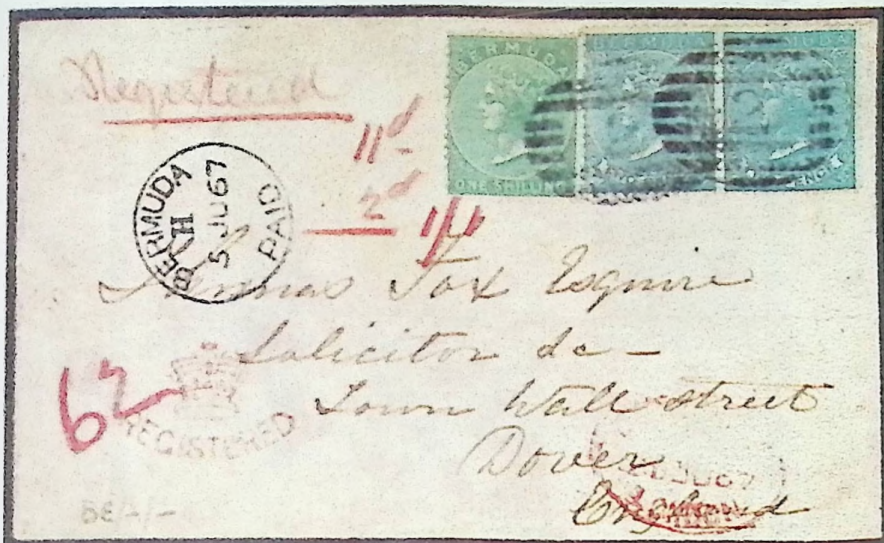 Registered
11d
2d
1/1
BERMUDA
ONE SHILLING
BERMUDA
BERMUDA
H
5 JU 67
PAID
Thomas Fox Esquire
Solicitor &c -
Town Wall Street
Dover
England
REGISTERED
JU 67